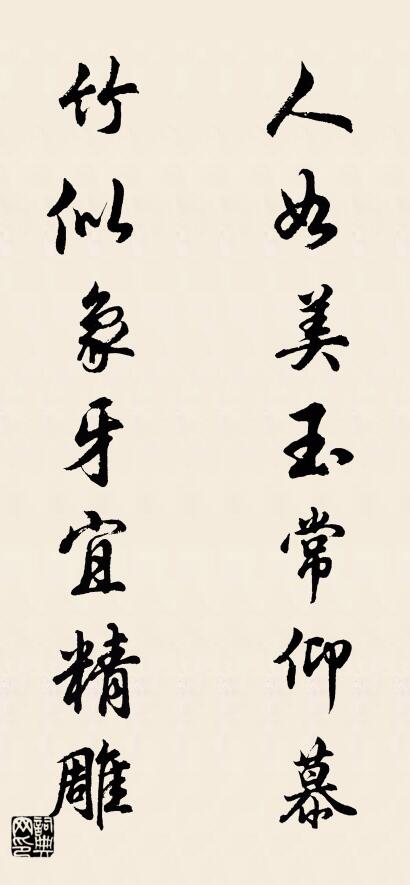 人如美玉常仰慕
竹似象牙宜精雕
詞典网印